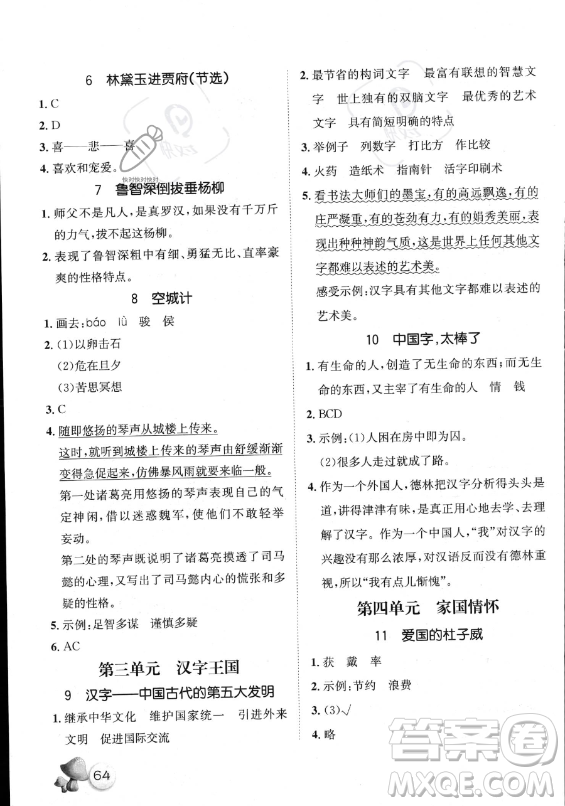 6 林黛玉进贾府(节选)
1. C
2. D
3. 喜——悲——喜
4. 喜欢和宠爱。
7 鲁智深倒拔垂杨柳
1. 师父不是凡人，是真罗汉，如果没有千万斤
的力气，拔不起这杨柳。
2. 表现了鲁智深粗中有细、勇猛无比、直率豪
爽的性格特点。
8 空城计
1. 画去：báo lǜ 骏 侯
2. (1)以卵击石
(2)危在旦夕
(3)苦思冥想
3. C
4. 随即悠扬的琴声从城楼上传来。
这时，就听到城楼上的琴声由舒缓渐渐
变得急促起来，仿佛暴风雨就要来临一般。
第一处诸葛亮用悠扬的琴声表现自己的气
定神闲，借以迷惑魏军，使其不敢轻举
妄动。
第二处的琴声表现了诸葛亮摸透了司马
懿的心理，又写出了司马懿的慌张和谨慎
多疑的性格。
5. 示例：足智多谋 谨慎多疑
6. AC
第三单元 汉字王国
9 汉字——中国古代的第五大发明
1. 继承中华文化 维护国家统一 引进外来
文明 促进国际交流
64
2. 最节省的构词文字 最富有联想的智慧文
字 世上独有的双脑文字 最优秀的艺术
文字 具有简短明确的特点
3. 举例子 列数字 打比方 作比较
4. 火药 造纸术 指南针 活字印刷术
5. 看书法大师们的墨宝，有的高远飘逸，有的
庄严凝重，有的苍劲有力，有的娟秀美丽，表
现出种种神韵气质，这是世界上任何其他文字
都难以表述的艺术美。
感受示例：汉字具有其他文字难以表述的
艺术美。
10 中国字，太棒了
1. 有生命的人，创造了无生命的东西；而无生
命的东西，又主宰了有生命的人 情 钱
2. BCD
3. 示例：(1)人困在房中即为囚。
(2)很多人走过就成了路。
4. 作为一个外国人，德林把汉字分析得头头是
道，讲起来津津有味，真正用心地去学、去
理解汉字。作为一个中国人，“我”对汉字的
兴趣没有那么浓厚，对汉语反而不比德林重
视，所以“我有点儿惭愧”。
第四单元 家国情怀
11 爱国的杜子威
1. 获 戴 率
2. 示例：节约 浪费
3. (3)√
4. 略
答案圈
MXQE.COM